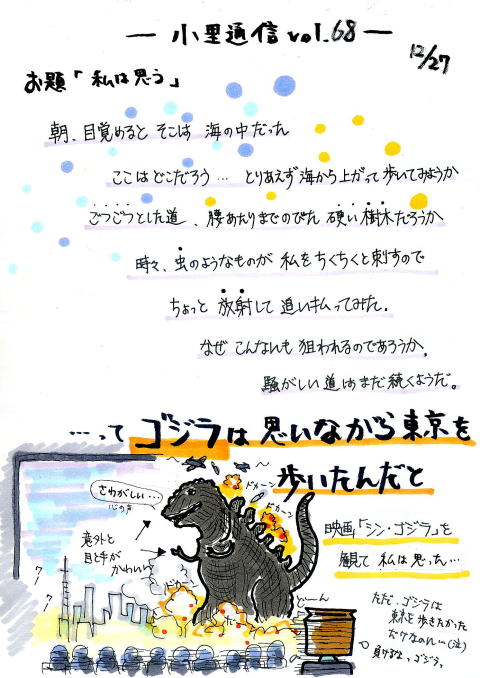 ― 小里通信 vol.68 ―
12/27
お題「私は思う」
朝、目覚めると そこは 海の中だった
ここはどこだろう… とりあえず海から上がって歩いてみようか
ごつごつとした道、腰あたりまでのびた 硬い樹木だろうか
時々、虫のようなものが 私をちくちくと刺すので
ちょっと 放射して 追い払ってみた。
なぜ こんなにも 狙われるのであろうか。
騒がしい道はまだ続くようだ。
…って ゴジラは思いながら東京を
歩いたんだと
映画「シン・ゴジラ」を
観て 私は思った…
さわがしい…
心の声
意外と
目と手が
かわいい
ドカーン
ドカーン
ドカーン
どーん
ただ、ゴジラは
東京を歩きたかった
だけなのに…(泣)
負けるな、ゴジラ。